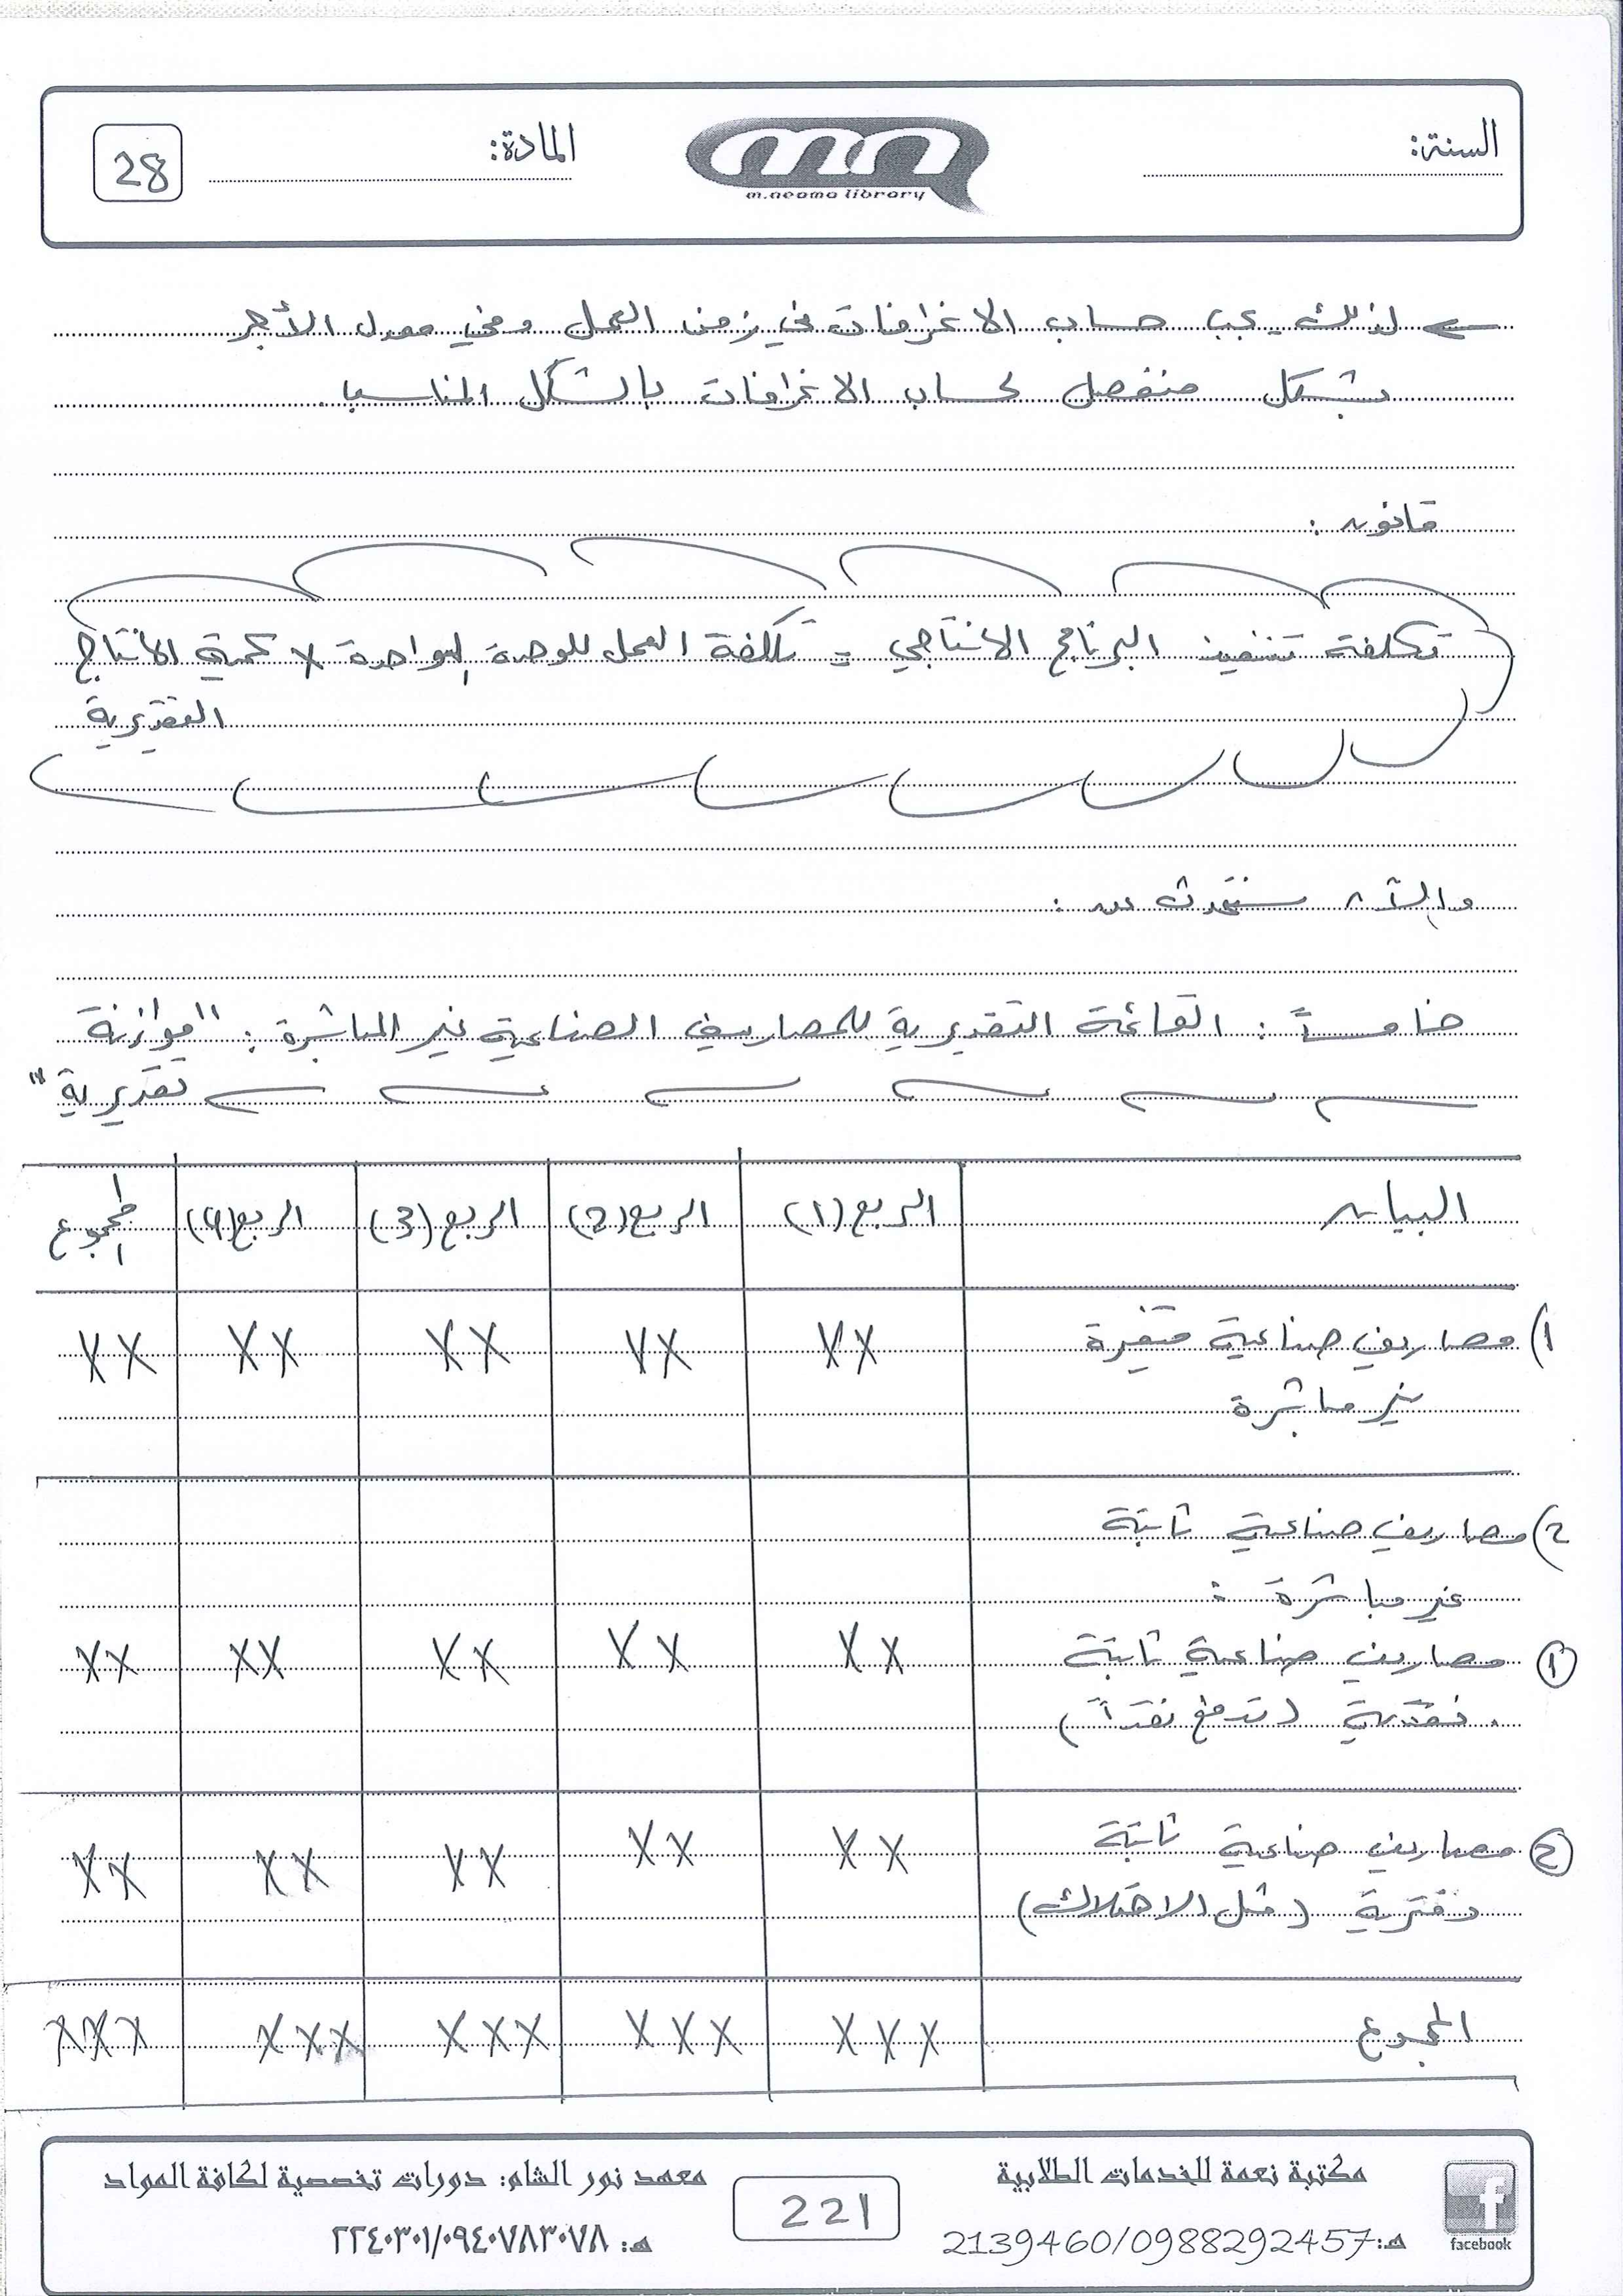 السنة:
m.neama library
المادة:
28
← لذلك يجب حساب الانحرافات في زمن العمل وفي معدل الأجر
بشكل منفصل لحساب الانحرافات بالشكل المناسب.
قانون :
تكلفة تنفيذ البرنامج الانتاجي = تكلفة العمل للوحدة الواحدة × كمية الانتاج
التقديرية
والآن سنتحدث عن :
خامساً : القائمة التقديرية للمصاريف الصناعية غير المباشرة : "موازنة
تقديرية"
البيان الربع (1) الربع (2) الربع (3) الربع (4) المجموع
1) مصاريف صناعية متغيرة XX XX XX XX XX
غير مباشرة
2) مصاريف صناعية ثابتة
غير مباشرة :
① مصاريف صناعية ثابتة XX XX XX XX XX
نقدية (تدفع نقداً)
② مصاريف صناعية ثابتة XX XX XX XX XX
دفترية (مثل الاهتلاك)
المجموع XXX XXX XXX XXX XXX
مكتبة نعمة للخدمات الطلابية
هـ:2139460/0988292457
facebook
221
معهد نور الشام: دورات تخصصية لكافة المواد
هـ: ٢٢٤٠٣٠١/٠٩٤٠٧٨٣٠٧٨